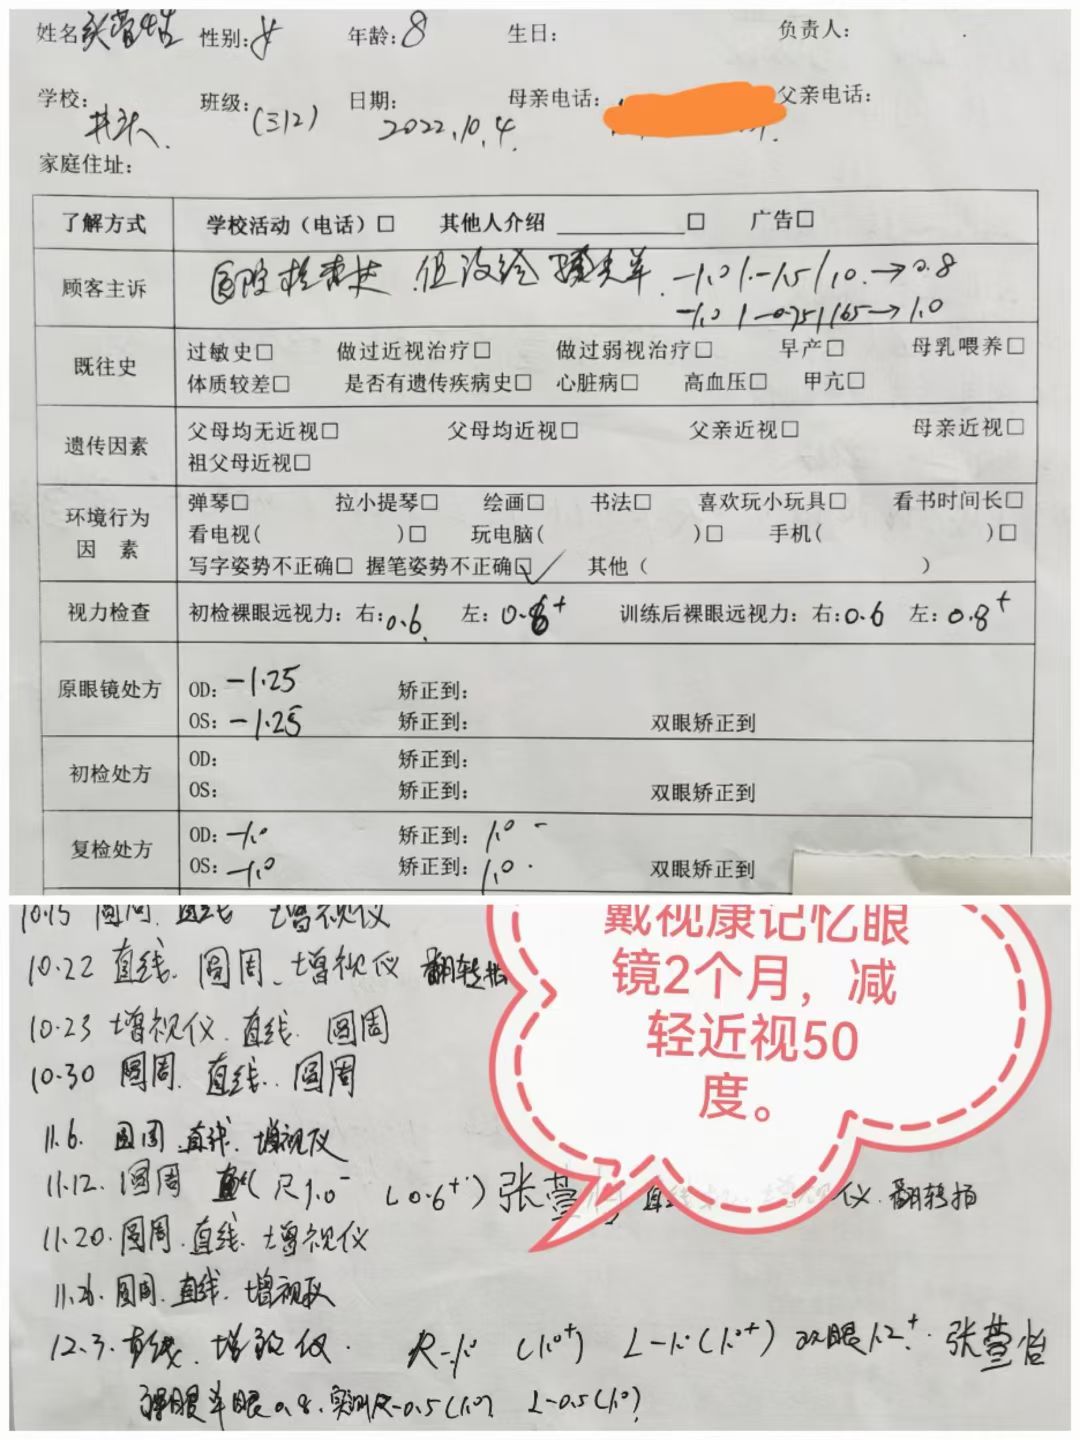 姓名 张萱怡 性别:女 年龄:8 生日: 负责人:
学校: 井头 班级:(312) 日期: 2022.10.4. 母亲电话: 父亲电话:
家庭住址:
了解方式 学校活动（电话）□ 其他人介绍 ________□ 广告□
顾客主诉 医院检查过 但没给 -1.0/-1.5/10.→0.8
-1.0/-0.75/165→1.0
既往史 过敏史□ 做过近视治疗□ 做过弱视治疗□ 早产□ 母乳喂养□
体质较差□ 是否有遗传疾病史□ 心脏病□ 高血压□ 甲亢□
遗传因素 父母均无近视□ 父母均近视□ 父亲近视□ 母亲近视□
祖父母近视□
环境行为因素 弹琴□ 拉小提琴□ 绘画□ 书法□ 喜欢玩小玩具□ 看书时间长□
看电视( )□ 玩电脑( )□ 手机( )□
写字姿势不正确□ 握笔姿势不正确☑ 其他（ ）
视力检查 初检裸眼远视力：右:0.6 左:0.8+ 训练后裸眼远视力：右:0.6 左:0.8+
原眼镜处方 OD:-1.25 矫正到:
OS:-1.25 矫正到: 双眼矫正到
初检处方 OD: 矫正到:
OS: 矫正到: 双眼矫正到
复检处方 OD:-1.0 矫正到:1.0-
OS:-1.0 矫正到:1.0 双眼矫正到
10.15 圆周.直线 增视仪
10.22 直线.圆周、增视仪 翻转拍
10.23 增视仪.直线.圆周
10.30 圆周.直线.圆周
11.6. 圆周.直线.增视仪
11.12. 圆周 直 R1.0- L0.6+) 张萱 直线 仪.翻转拍
11.20.圆周.直线.增视仪
11.26.圆周.直线.增视仪
12.3.直线.增视仪. R-1.0 (1.0+) L-1.0(1.0+) 双眼1.2+. 张萱怡
裸眼单眼0.8.实测R-0.5(1.0) L-0.5(1.0)
戴视康记忆眼
镜2个月，减
轻近视50
度。